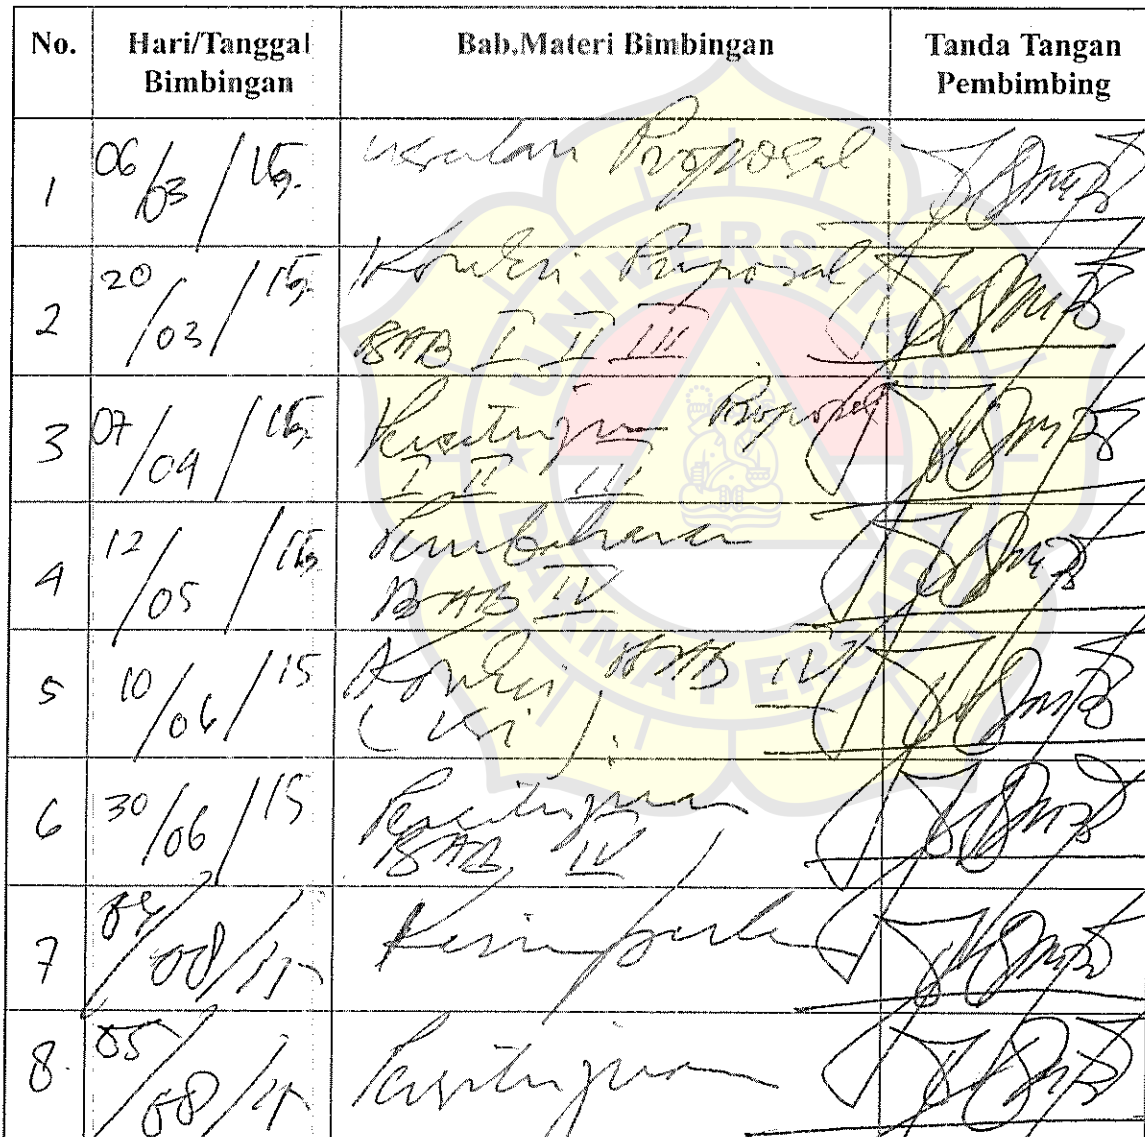 No. Hari/Tanggal Bimbingan Bab.Materi Bimbingan Tanda Tangan Pembimbing
1 06/03/15 usulan Proposal
2 20/03/15 Koreksi Proposal
BAB I II III
3 07/04/15 Persetujuan Proposal
I II III
4 12/05/15 Pembahasan
BAB IV
5 10/06/15 Koreksi BAB IV
6 30/06/15 Persetujuan
BAB IV
7 /08/15 Kesimpulan
8. 05/08/15 Persetujuan
UNIVERSITAS
DARMA PERSADA